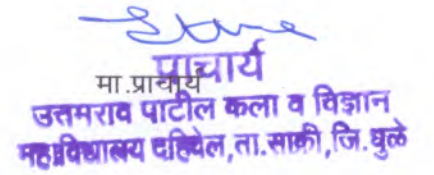 प्राचार्य
मा.प्राचार्य
उत्तमराव पाटील कला व विज्ञान
महाविद्यालय दहिवेल,ता.साक्री,जि.धुळे